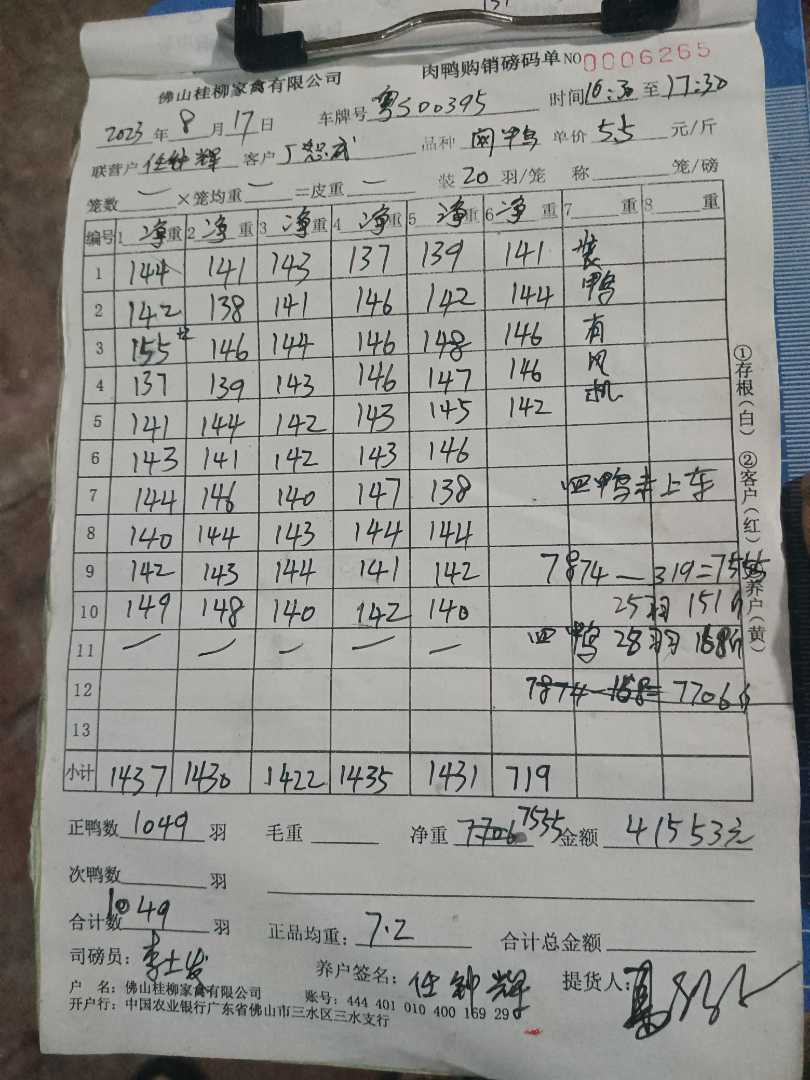 佛山桂柳家禽有限公司 肉鸭购销磅码单 NO 0006265
2023年8月17日 车牌号粤S00395 时间16:30至17:30
联营户任钟辉 客户 品种 闽鸭 单价5.5元/斤
笼数 — ×笼均重 — =皮重 — 装20羽/笼 称 笼/磅
编号 1净重 2净重 3净重 4净重 5净重 6净重 7 重 8 重
1 144 141 143 137 139 141 装
2 142 138 141 146 142 144 鸭
3 155 +2 146 144 146 148 146 有
4 137 139 143 146 147 146 风
5 141 144 142 143 145 142 机
6 143 141 142 143 146
7 144 146 140 147 138 四鸭未上车
8 140 144 143 144 144
9 142 143 144 141 142 7874—319=7555
10 149 148 140 142 140 25羽 151斤
11 — — — — — 四鸭 28羽 168斤
12 7874—168= 7706斤
13
小计 1437 1430 1422 1435 1431 719
正鸭数1049羽 毛重 净重 7706 7555 金额 41553元
次鸭数 羽
合计数1049羽 正品均重:7.2 合计总金额
司磅员:李士发 养户签名:任钟辉 提货人:
户 名:佛山桂柳家禽有限公司 账号:444 401 010 400 169 29
开户行:中国农业银行广东省佛山市三水区三水支行
①存根(白) ②客户(红) ③养户(黄)